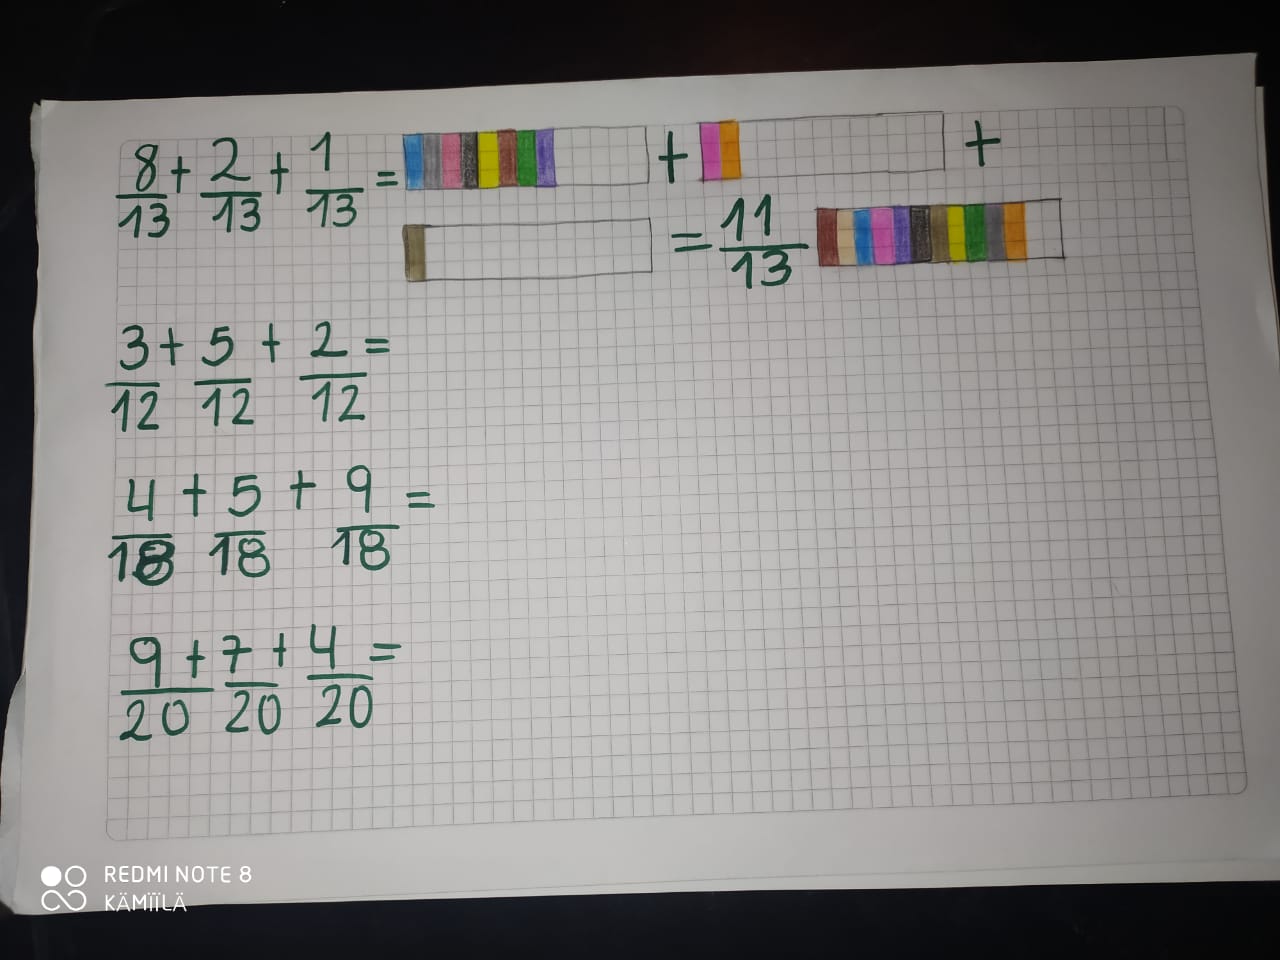 8/13 + 2/13 + 1/13 = +  +
= 11/13
3/12 + 5/12 + 2/12 =
4/18 + 5/18 + 9/18 =
9/20 + 7/20 + 4/20 =
REDMI NOTE 8
KÄMÏÏLÄ